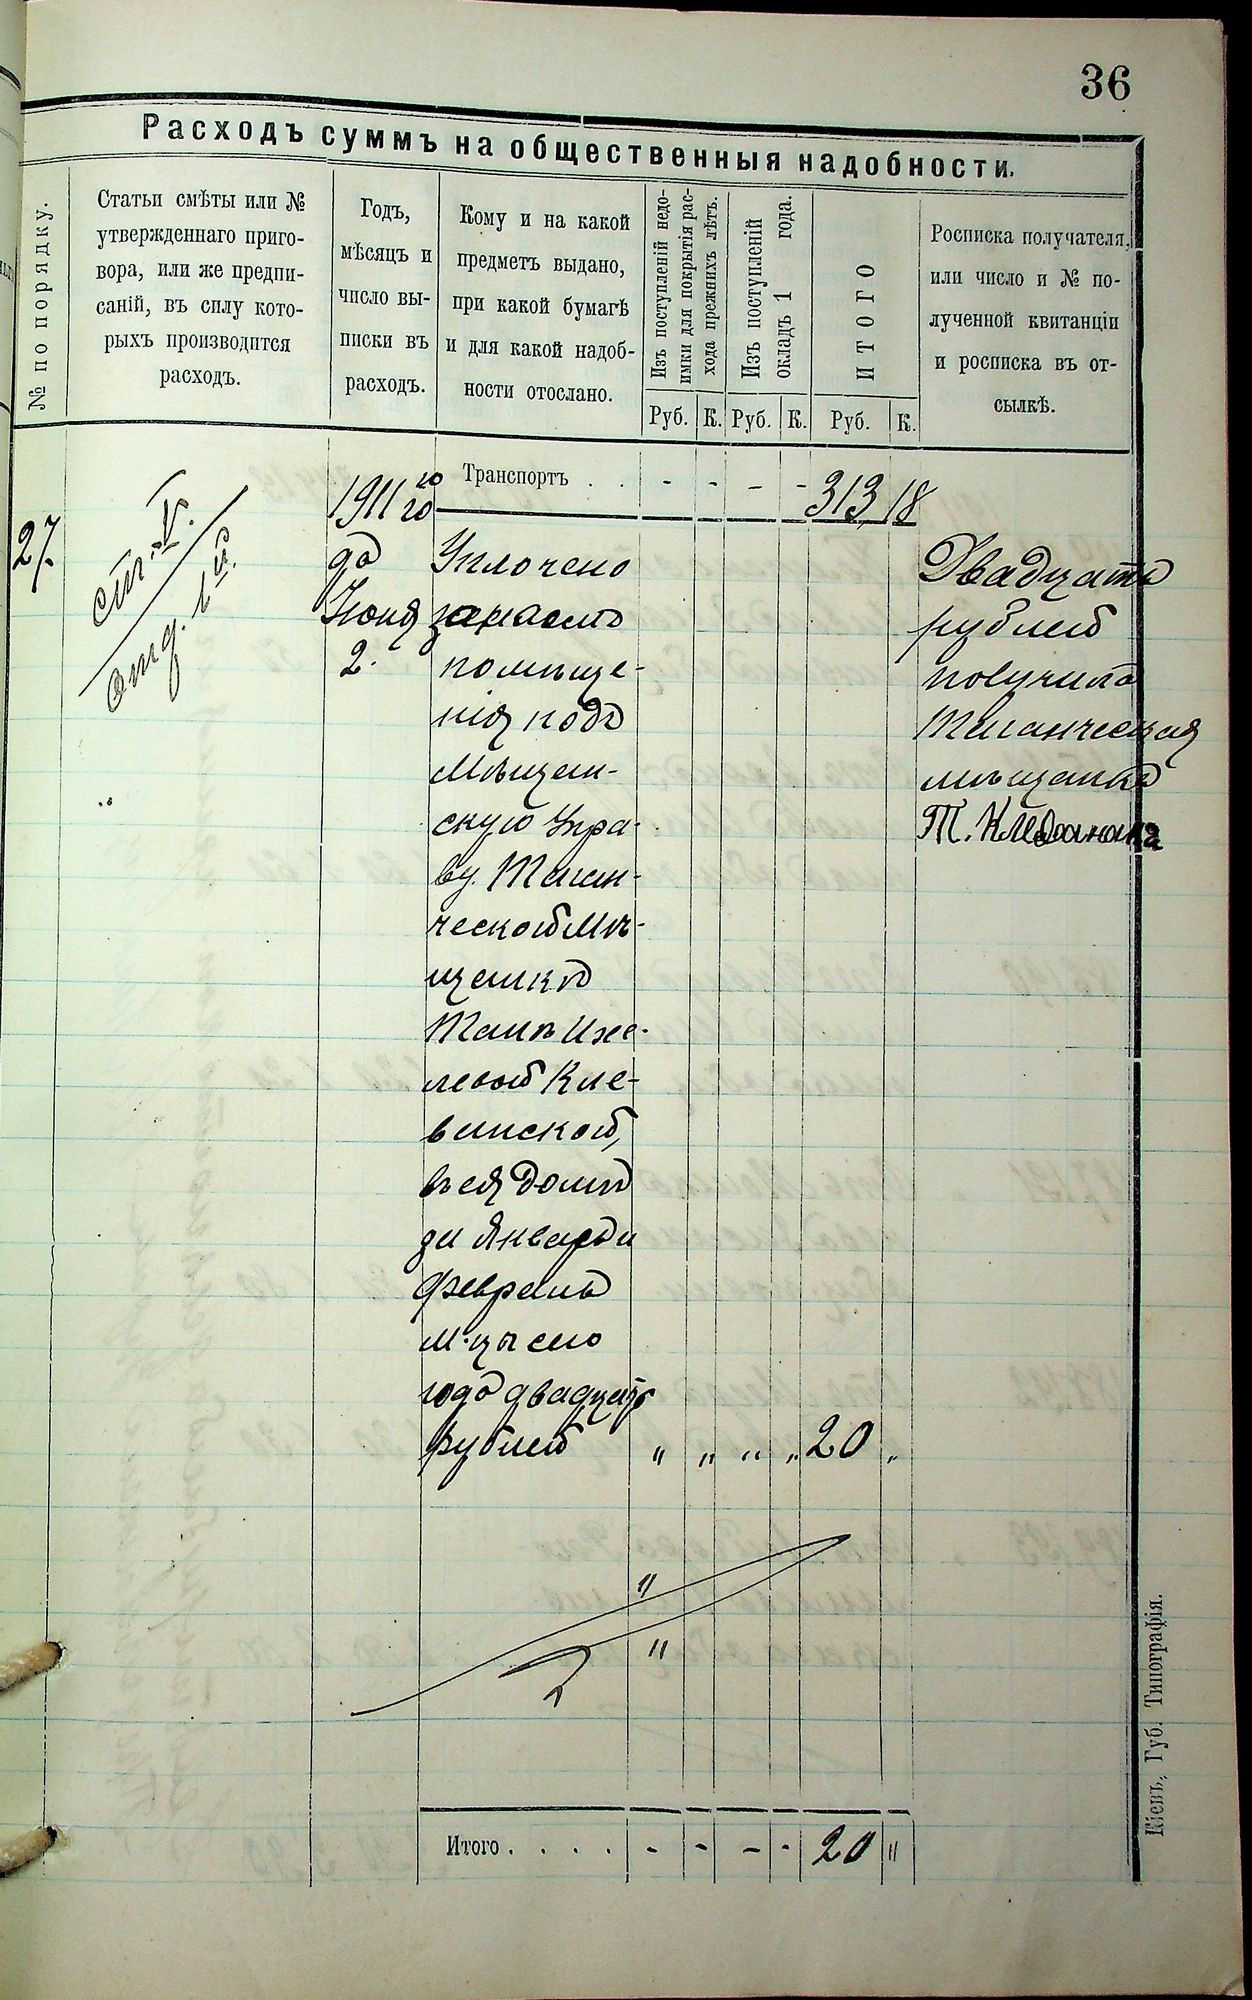 36
Расходъ суммъ на общественныя надобности.
№ по порядку.
Статьи смѣты или №
утвержденнаго приго-
вора, или же предпи-
саній, въ силу кото-
рыхъ производится
расходъ.
Годъ,
мѣсяцъ и
число вы-
писки въ
расходъ.
Кому и на какой
предметъ выдано,
при какой бумагѣ
и для какой надоб-
ности отослано.
Изъ поступленій недо-
имки для покрытія рас-
хода прежнихъ лѣтъ.
Изъ поступленій
окладъ 1 года.
ИТОГО
Росписка получателя,
или число и № по-
лученной квитанціи
и росписка въ от-
сылкѣ.
Руб. К. Руб. К. Руб. К.
Транспортъ . . - - - - 313 18
27.
ст. V.
отд. 1й.
1911 го
да
Іюня
2.
Уплочено
за наемъ
помѣще-
нія подъ
Мѣщан-
скую Упра-
ву. Таган-
ческой Мѣ-
щанкѣ
въ ея домѣ
за Январь и
Февраль
м-цы сего
года двадцать
рублей „ „ „ „ 20 „
Двадцать
рублей
получила
Таганческая
мѣщанка
"
"
Итого . . . . - - - - 20 "
Кіевъ, Губ. Типографія.